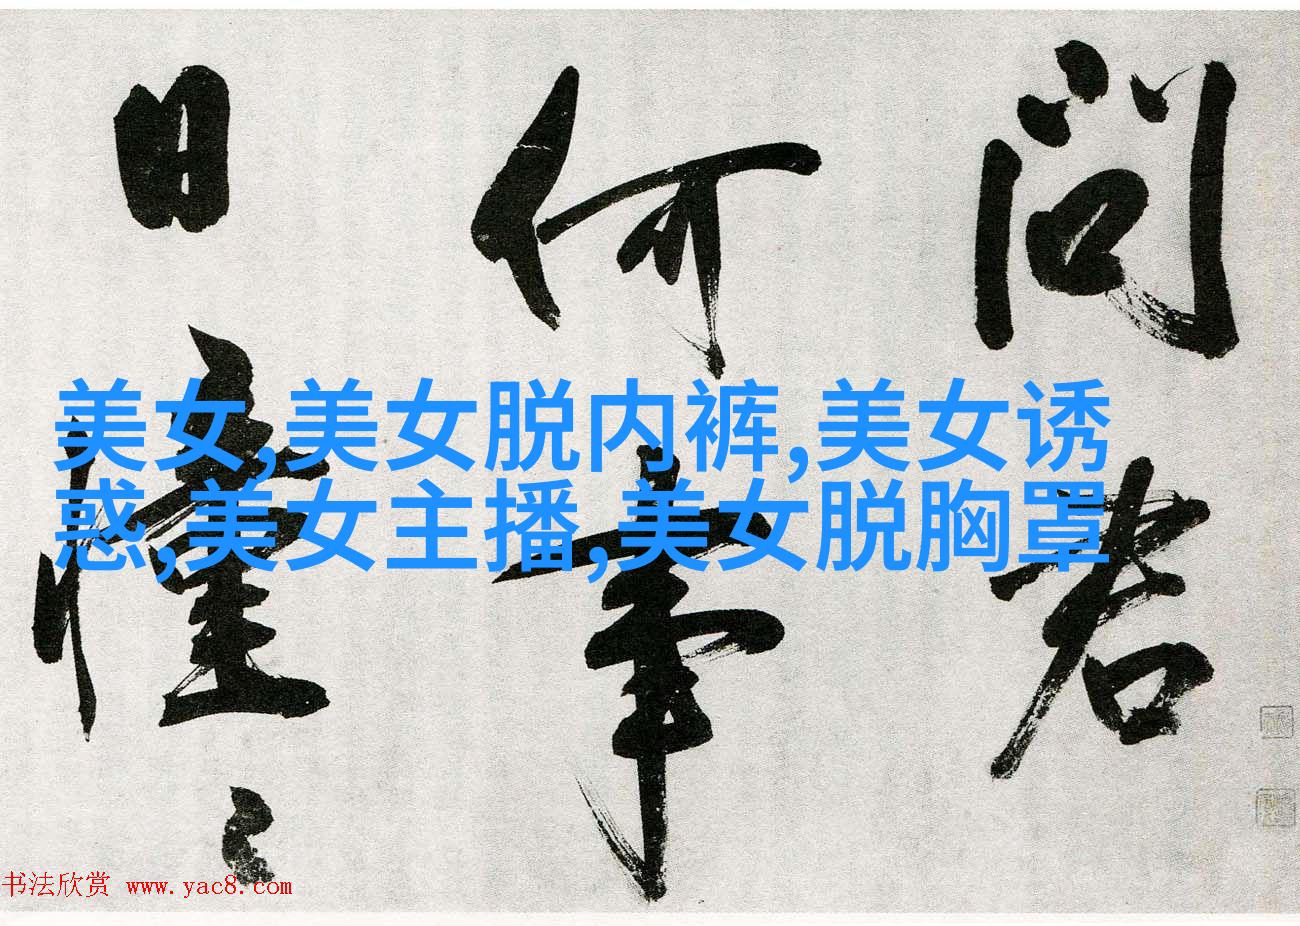 问君
何事
日憧々
美女,美女脱内裤,美女诱
惑,美女主播,美女脱胸罩
书法欣赏 www.yac8.com